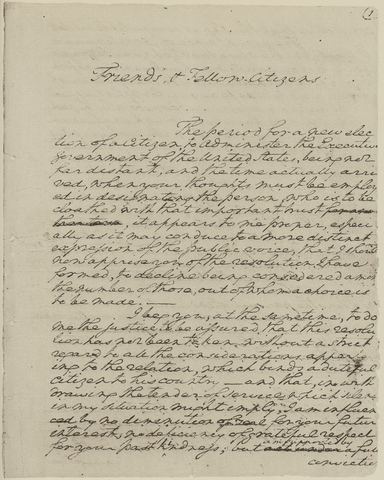 (1
Friends, & Fellow-Citizens
The period for a new elec
tion of a Citizen, to Administer the Executive
Government of the United States, being not
far distant, and the time actually arri
ved, when your thoughts must be employ
ed in designating the person, who is to be
cloathed with that important trust
it appears to me proper, especi
ally as it may conduce to a more distinct
expression of the public voice, that I should
now apprise you of the resolution I have
formed, to decline being considered among
the number of those, out of whom a choice is
to be made. —
I beg you, at the same time, to do
me the justice to be assured, that this resolu
tion has not been taken, without a strict
regard to all the considerations appertain
ing to the relation, which binds a dutiful
Citizen to his country — and that, in with
drawing the tender of service which silence
in my situation might imply, I am influen
ced by no diminution of zeal for your future
interest, no deficiency of grateful respect
for your past kindness; but am supported by a full
conviction